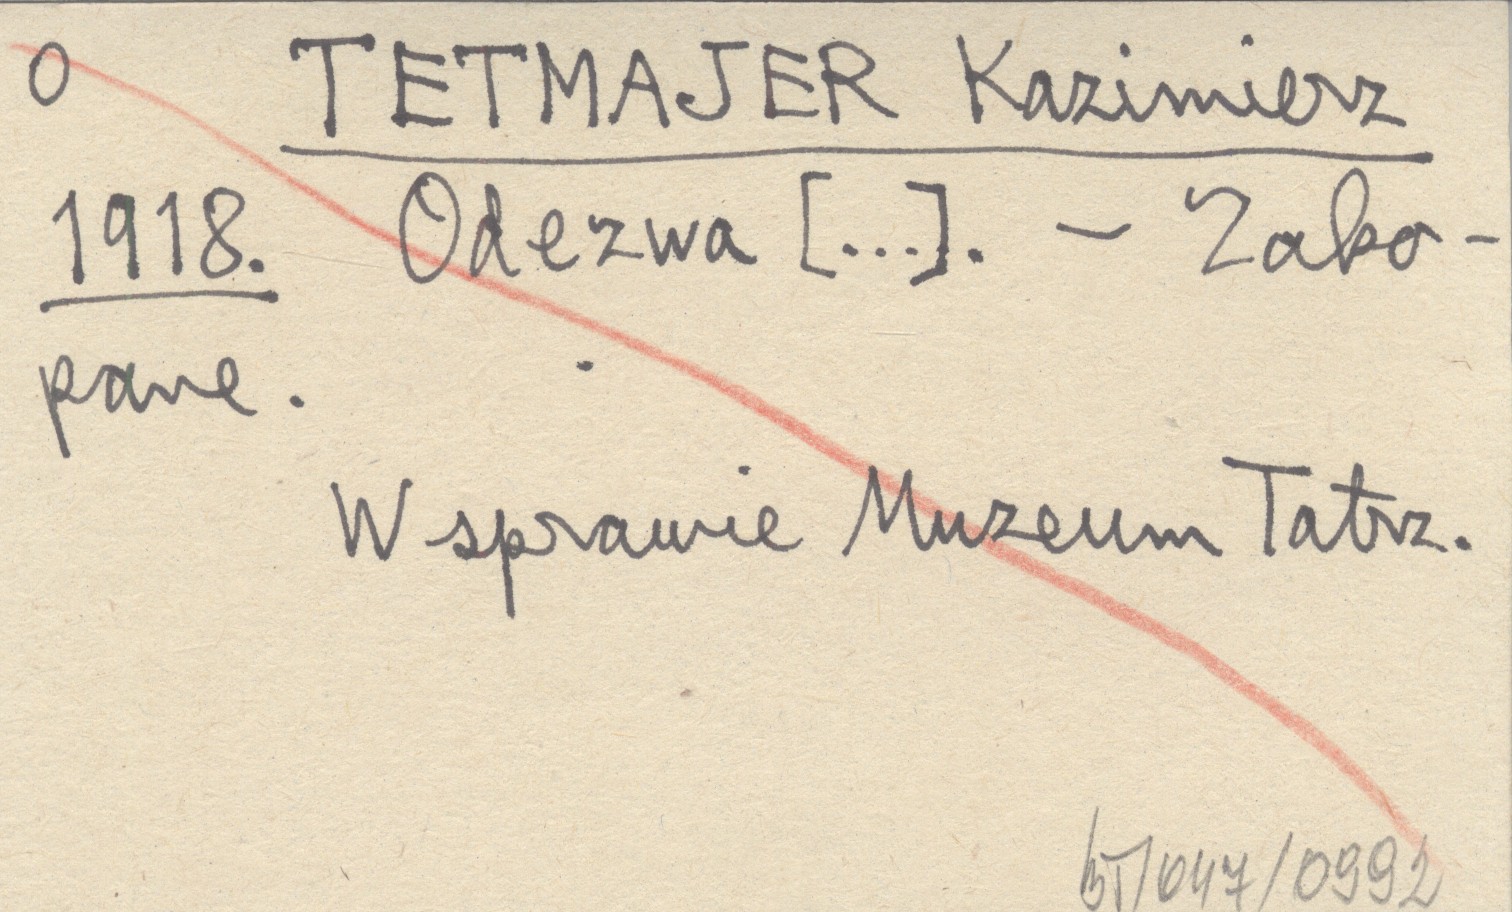 O TETMAJER Kazimierz
1918. Odezwa [...]. – Zako-
pane.
W sprawie Muzeum Tatrz.
BT/047/0992